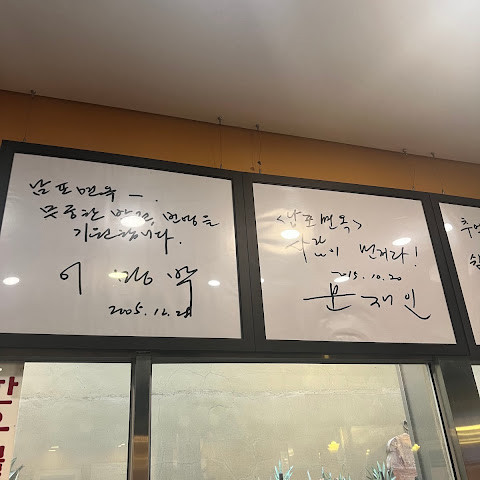 남포면옥 —.
무궁한 발전, 번영을
기원합니다.
이 명박
2005.12.28
<남포면옥>
사람이 먼저다!
2015.10.20
문재인
추억